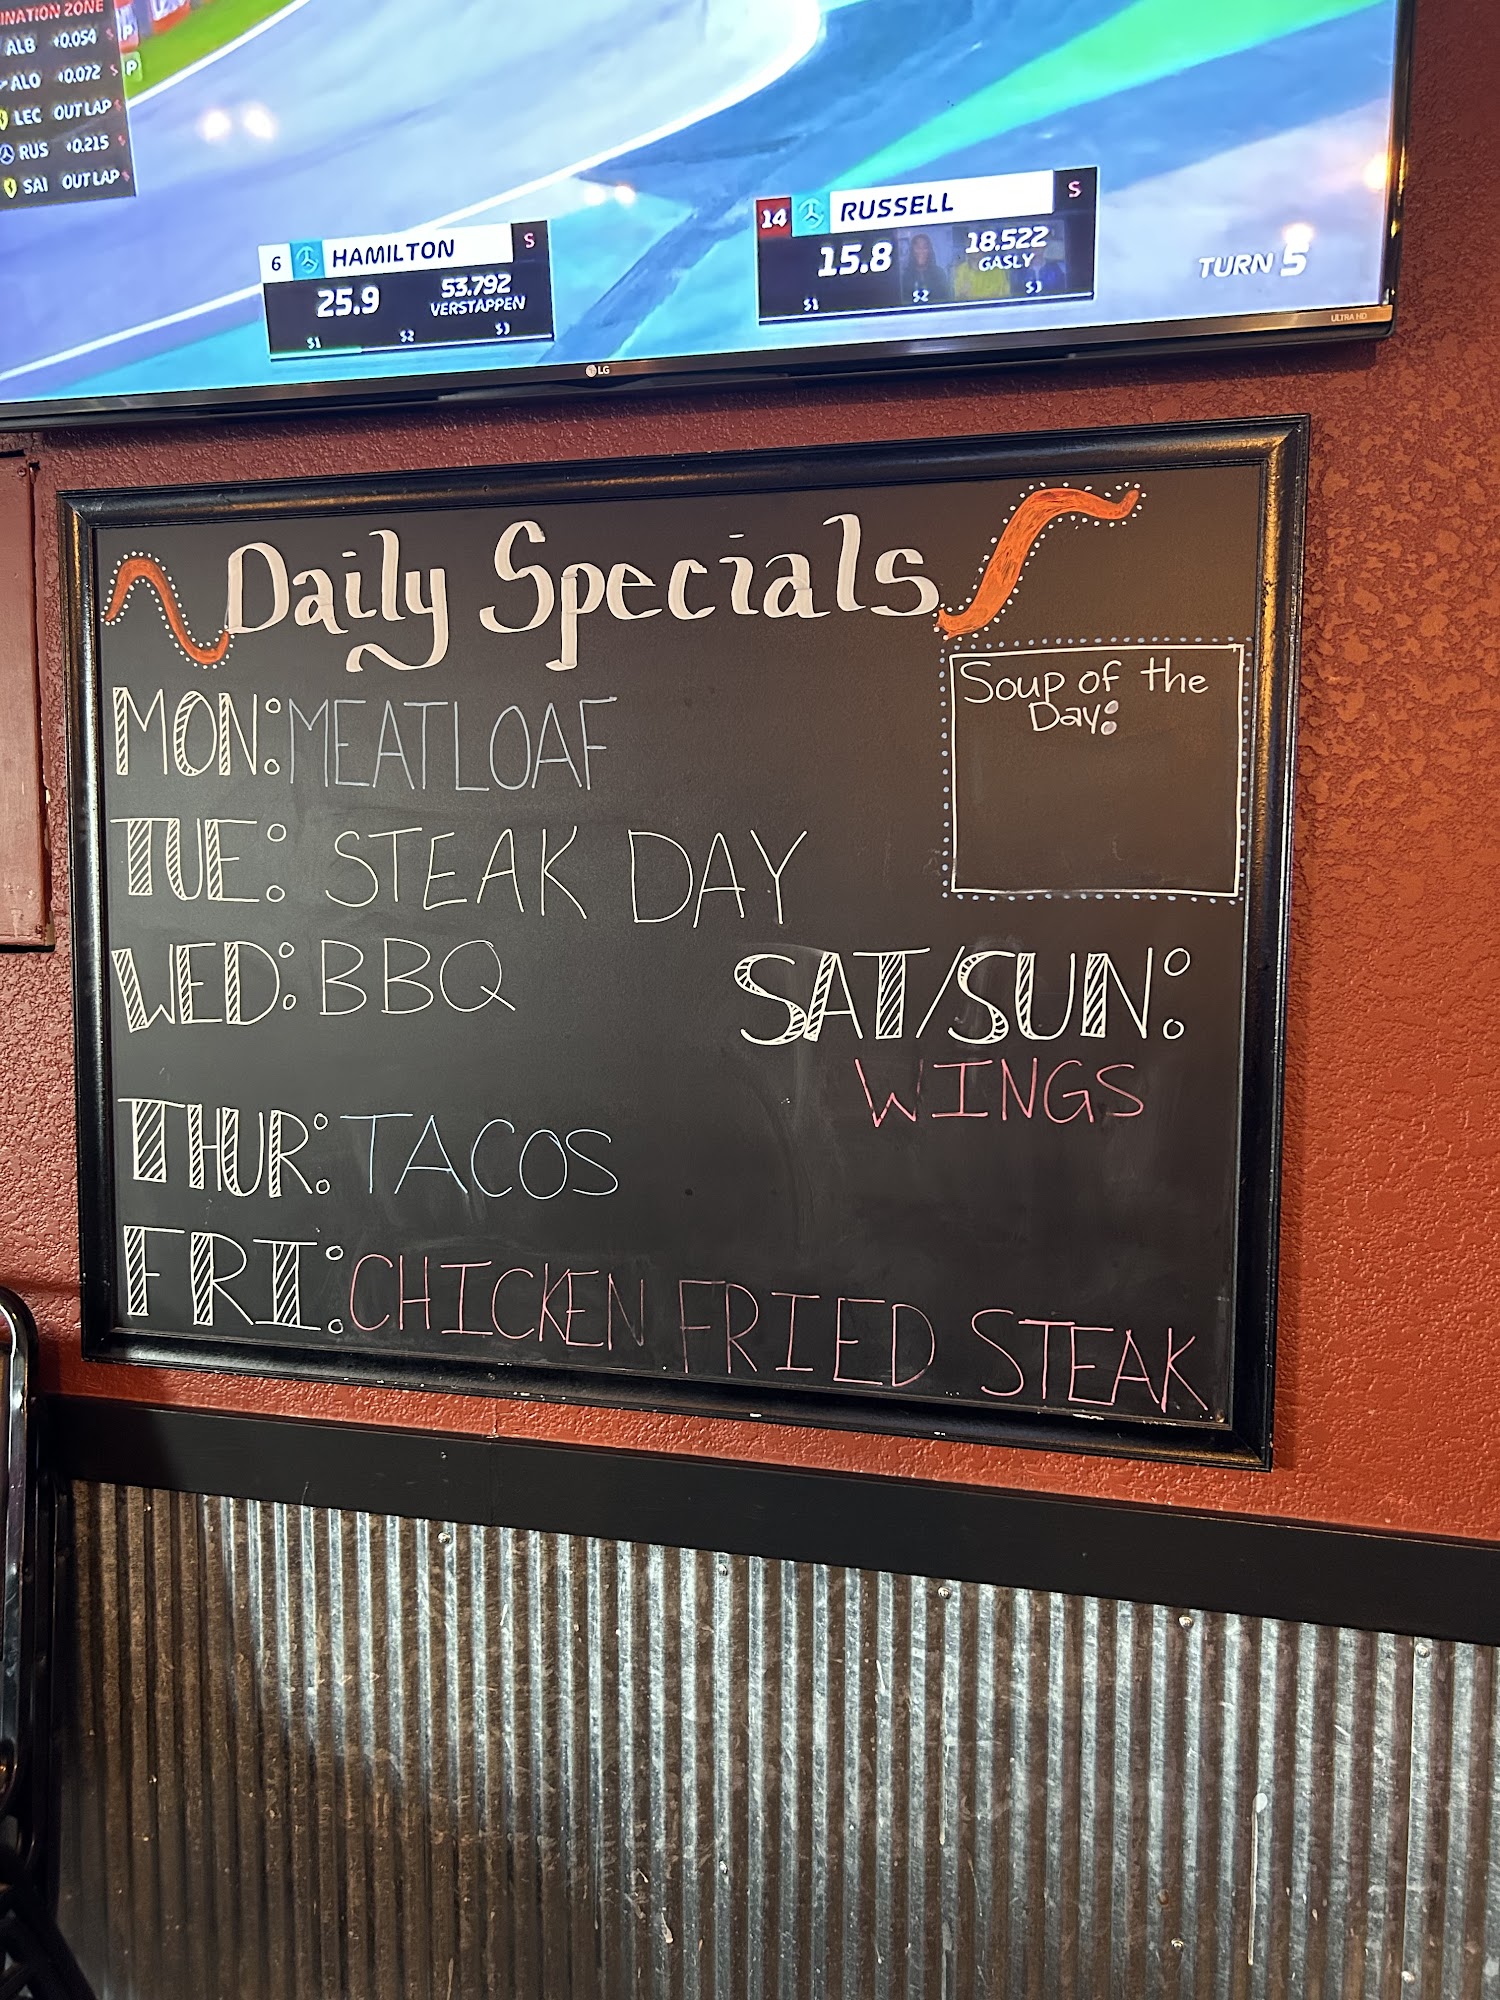 INATION ZONE
ALB +0.054 S P
ALO +0.072 S P
LEC OUT LAP S
RUS +0.215
SAI OUT LAP S
6 HAMILTON S
25.9 53.792
VERSTAPPEN
S1 S2 S3
14 RUSSELL S
15.8 18.522
GASLY
S1 S2 S3
TURN 5
LG
ULTRA HD
Daily Specials
MON: MEATLOAF
TUE: STEAK DAY
WED: BBQ
THUR: TACOS
FRI: CHICKEN FRIED STEAK
Soup of the
Day:
SAT/SUN:
WINGS